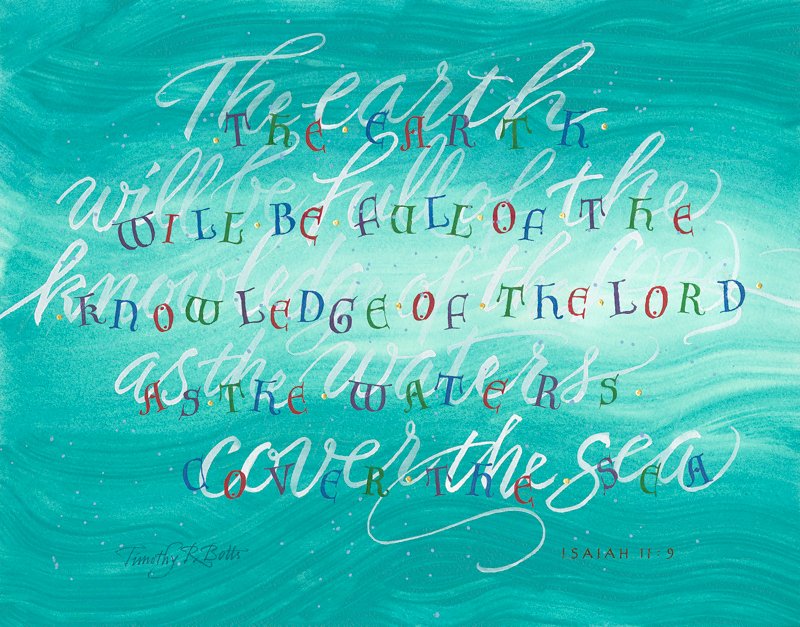 The earth
THE EARTH
will be full of the
WILL BE FULL OF THE
knowledge of the Lord
KNOWLEDGE OF THE LORD
as the waters
AS THE WATERS
cover the sea
COVER THE SEA
Timothy R. Botts
ISAIAH 11:9